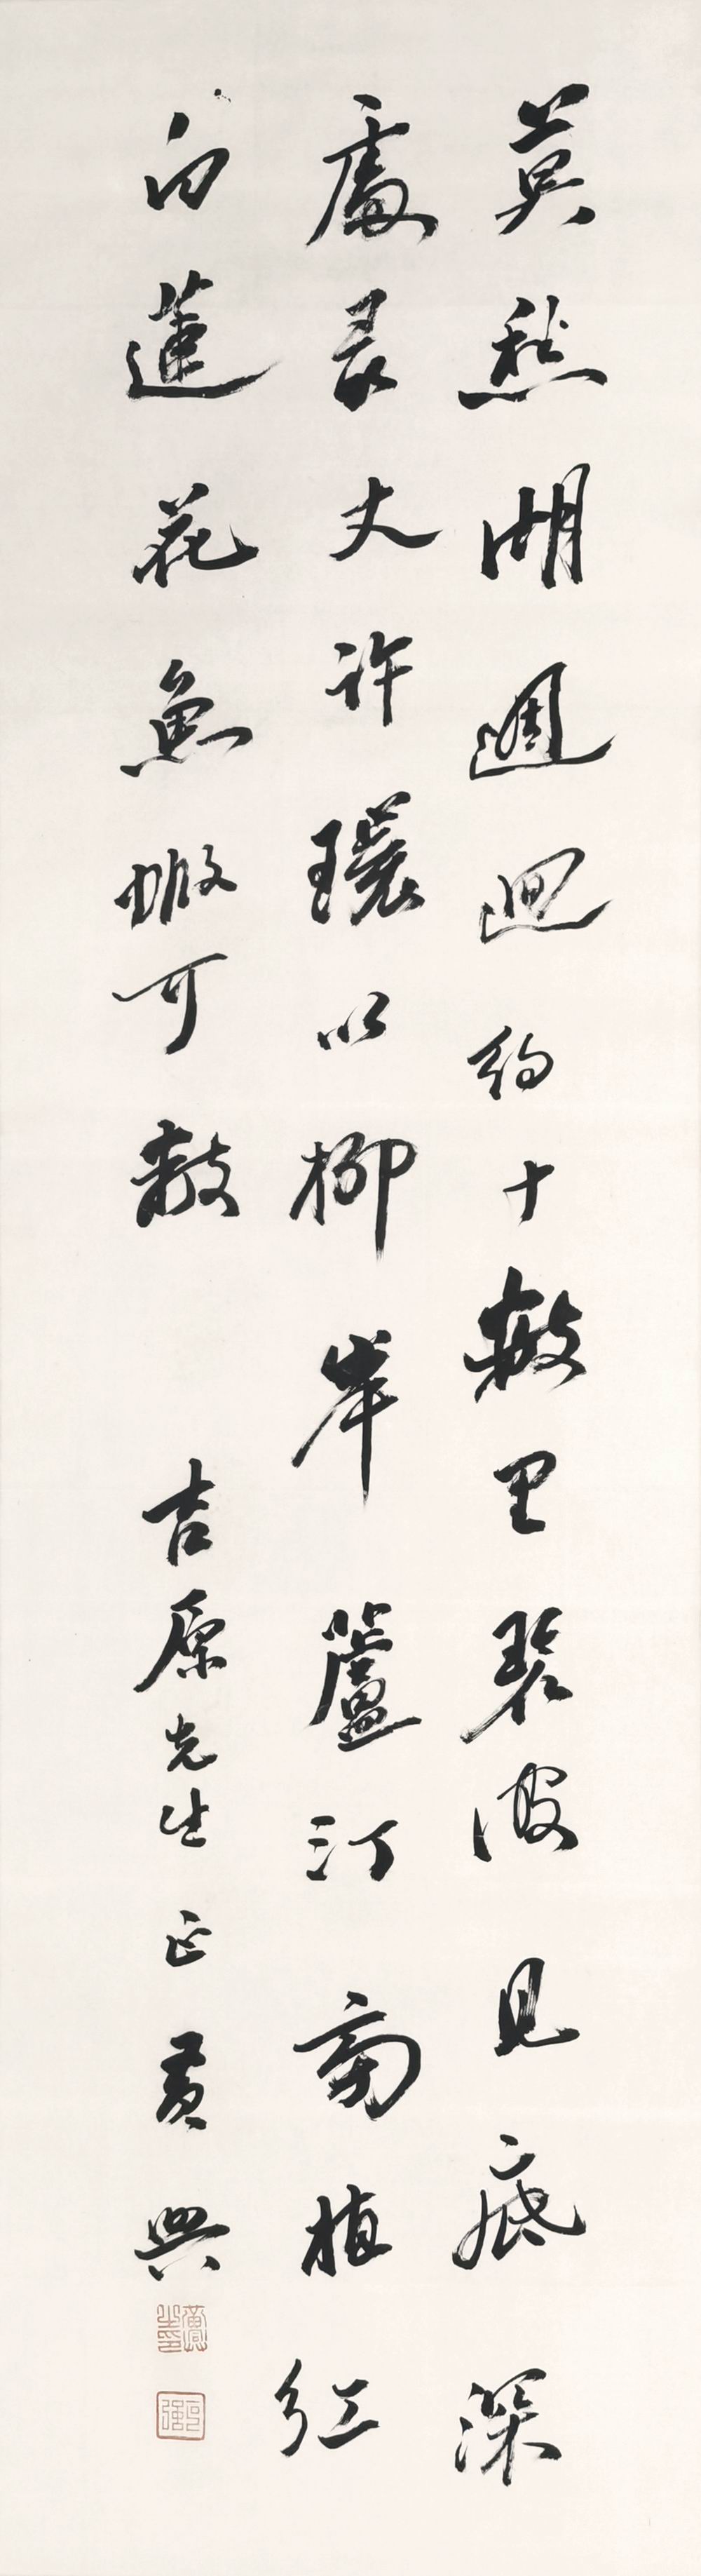 莫愁湖週迴約十數里碧波見底深
處尋丈許環以柳岸蘆汀商植紅
白蓮花魚蝦可數 吉原先生正 黃興